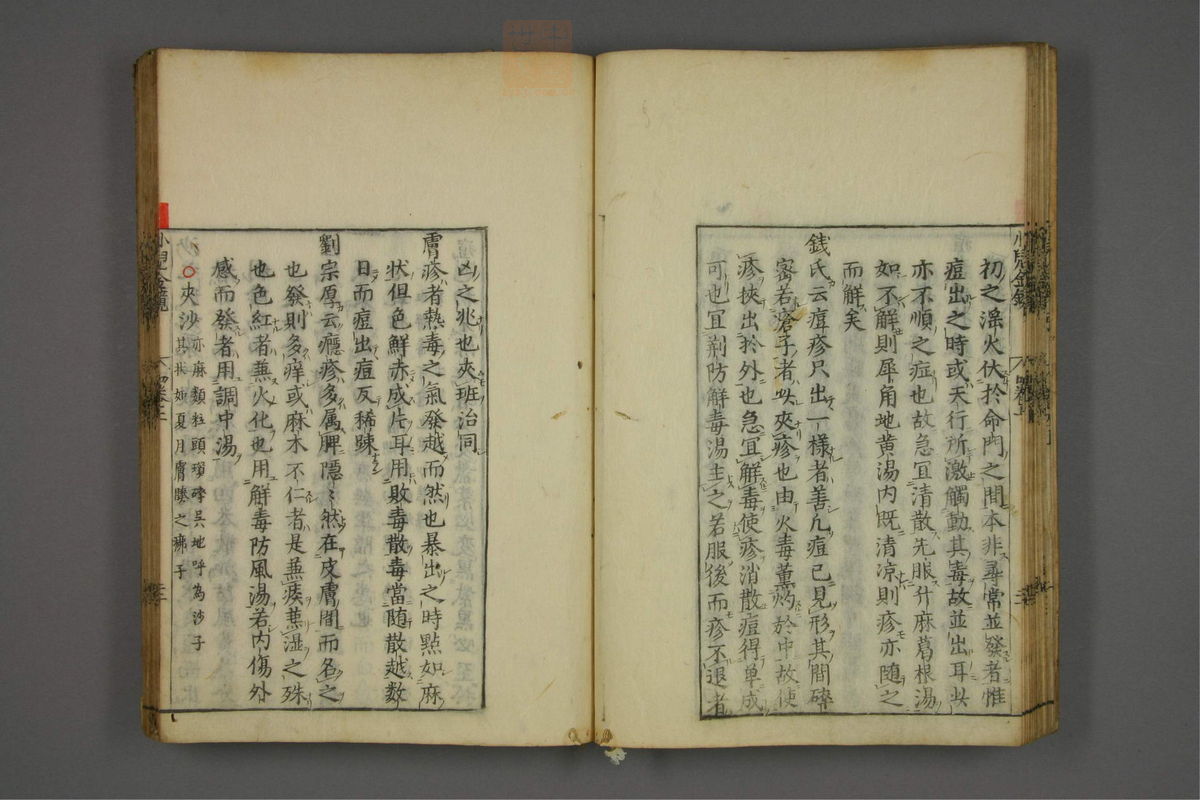 初之淫火伏於命門之間本非尋常並發者惟
痘出之時或天行所激觸動其毒故並出耳此
亦不順之症也故急宜清散先服升麻葛根湯
如不解則犀角地黄湯内既清凉則疹亦随之
而解矣
錢氏云痘疹只出一様者善凡痘已見形其間碎
密若滄子者此夾疹也由火毒薫灼於中故使
疹挾出於外也急宜解毒使疹消散痘得単成
可也宜荊防解毒湯主之若服後而疹不退者
凶之兆也夾班治同
膚疹者熱毒之氣發越而然也暴出之時點如麻
状但色鮮赤成片耳用敗毒散毒當随散越数
日而痘出痘反稀踈
劉宗厚云癮疹多属脾隠〻然在皮膚間而名之
也發則多痒或麻木不仁者是兼痰兼湿之殊
也色紅者兼火化也用解毒防風湯若内傷外
感而發者用調中湯
○夾沙亦麻類粒頭瑣碎吳地呼為沙子
其状如夏月膚腠之疿子